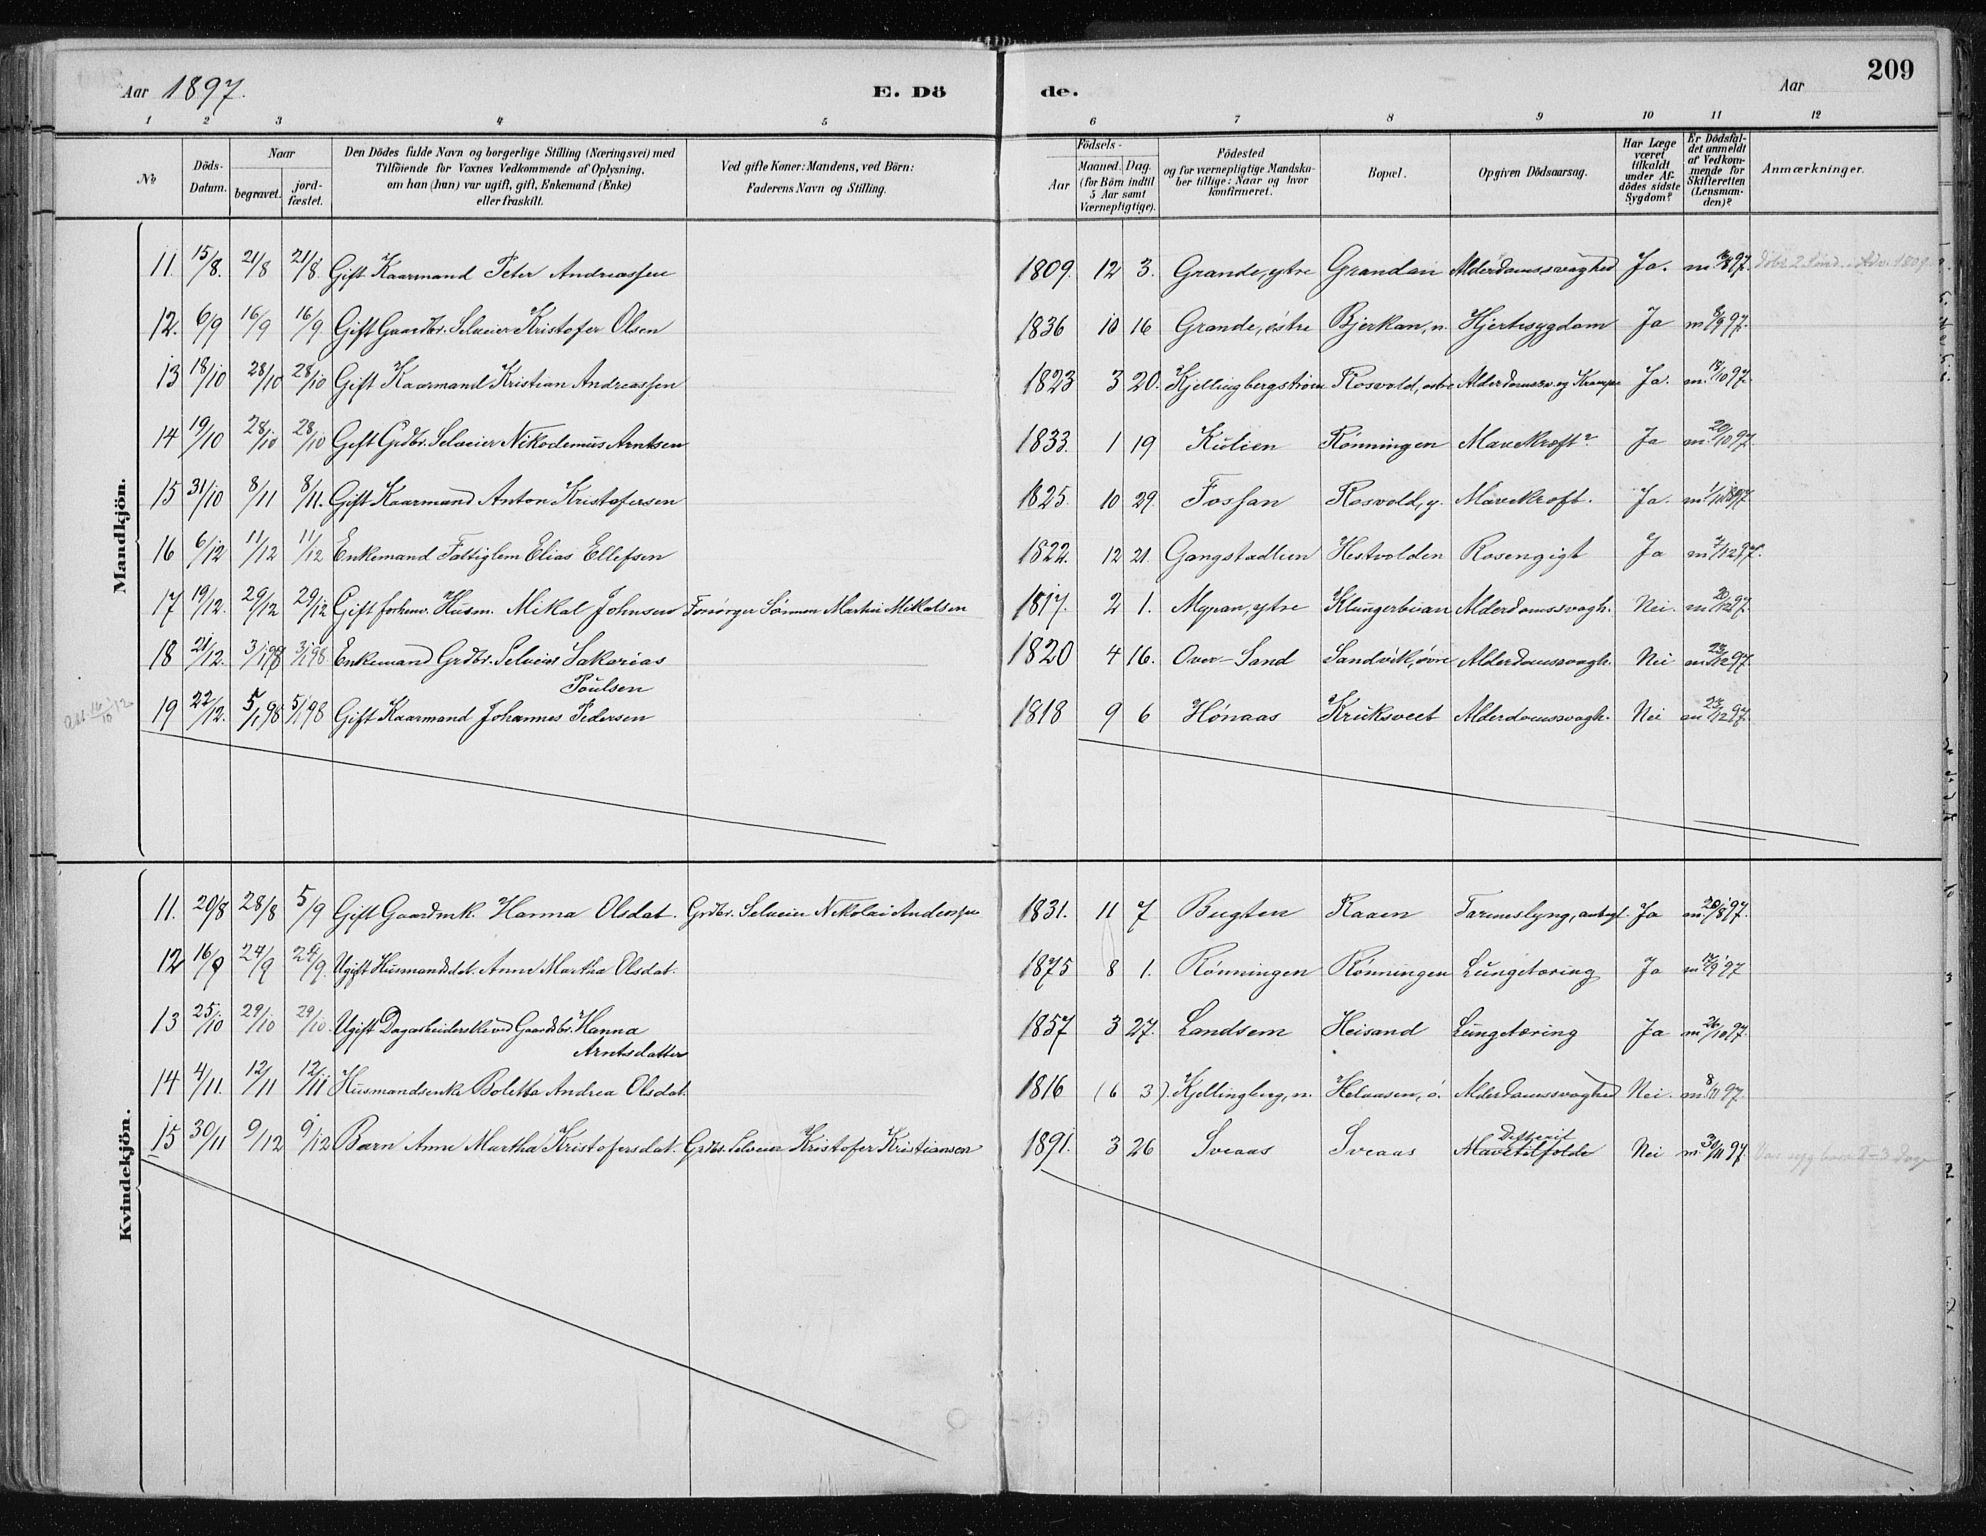 Aar 1897. E. Dö de. Aar 209
1 2 3 4 5 6 7 8 9 10 11 12
№ Döds-Datum. Naar begravet. jord-fæstet. Den Dödes fulde Navn og borgerlige Stilling (Næringsvei) med Tilföiende for Voxnes Vedkommende af Oplysning, om han (hun) var ugift, gift, Enkemand (Enke) eller fraskilt. Ved gifte Koner: Mandens, ved Börn: Faderens Navn og Stilling. Födsels- Aar Maaned. Dag. (for Börn indtil 5 Aar samt Værnepligtige). Födested og for værnepligtige Mandskaber tillige: Naar og hvor konfirmeret. Bopæl. Opgiven Dödsaarsag. Har Læge været tilkaldt under Afdödes sidste Sygdom? Er Dödsfaldet anmeldt af Vedkommende for Skifteretten (Lensmanden)? Anmærkninger.
Mandkjön.
11. 15/8. 21/8 21/8. Gift Kaarmand Peter Andreassen 1809. 12 3. Grande, ytre Grandan Alderdomssvaghed Ja.
12. 6/9 16/9 16/9 Gift Gaardbr. Selveier Kristofer Olsen 1836 10 16 Grande, östre Bjerkan, n. Hjertesygdom Ja m. 8/9 97.
13 18/10 28/10 28/10 Gift Kaarmand Kristian Andreassen 1823 3 20. Kjellingbergstrøen Rosvold, østre Alderdomssv. og Krampe Ja. m. 19/10 97.
14 19/10 28/10 28/10 Gift Grdbr. Selveier Nikodemus Arntsen 1833. 1 19 Kulien Rønningen Mavekræft? Ja m. 20/10 97.
15 31/10 8/11 8/11. Gift Kaarmand Anton Kristofersen 1825. 10 29. Fossan Rosvold, y. Mavekræft. Ja.
16 6/12 11/12 11/12 Enkemand Fattiglem Elias Ellefsen 1822. 12 21. Gangstadlien Hestvolden Rosengigt Ja m. 7/12 97.
17 19/12. 29/12 29/12 Gift forhenv. Husm. Mikal Johnsen Forsørger Sønnen Martin Mikalsen 1817. 2 1. Myran, ytre Klungerbuan Alderdomssvagh. Nei. m. 20/12 97.
18 21/12. 3/1 98 3/1 98 Enkemand Grdbr. Selveier Sakarias 1820 4 16. Over-Sand Sandvik, øvre Alderdomssvagh. Nei m. 23/12 97.
Poulsen
19 22/12. 5/1 98 5/1 98 Gift Kaarmand Johannes Pedersen 1818 9 6 Hónaas Kruksveet Alderdomssvagh. Nei m. 23/12 97.
Kvindekjön.
11. 20/8 28/8 5/9 Gift Gaardmk. Hanna Olsdat. Grdbr. Selveier Nikolai Andersen 1831. 11 7 Bugten Raaen Tarmeslyng, antagl. Ja m. 20/8 97.
12 16/9 24/9 24/9. Ugift Husmandsdat. Anne Martha Olsdat. 1875 8 1. Rønningen Rønningen Lungetæring Ja m. 17/9 97
13 25/10 29/10 29/10 Ugift Dagarbeiderske ved Gaardsbr. Hanna 1857 3 27. Landsem Heisand Lungetæring Ja m. 26/10 97.
Arntsdatter
14 4/11. 12/11 12/11 Husmandsenke Boletta Andrea Olsdat. 1816 (6 3). Kjellingberg, n. Helaasen, ö. Alderdomssvaghed Nei. m. 8/11 97.
15 30/11 9/12 9/12 Barn Anne Martha Kristofersdat. Grdbr. Selveier Kristofer Kristiansen 1891. 3 26 Sveaas Sveaas Mavetilfælde Nei m. 30/11 97. Var syg bare 2-3 Dage